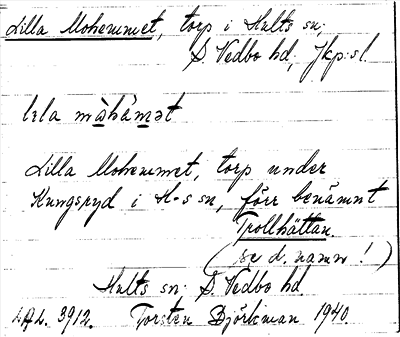 Lilla Mohemmet, torp i Hults sn;
S. Vedbo hd, Jkp:s l.
lɩla mòhæ̀mət
Lilla Mohemmet, torp under
Kungsryd i H-s sn, förr benämnt
Trollhättan.
(se d. namn!)
Hults sn. S. Vedbo hd.
LAL. 3912. Torsten Björkman 1940.